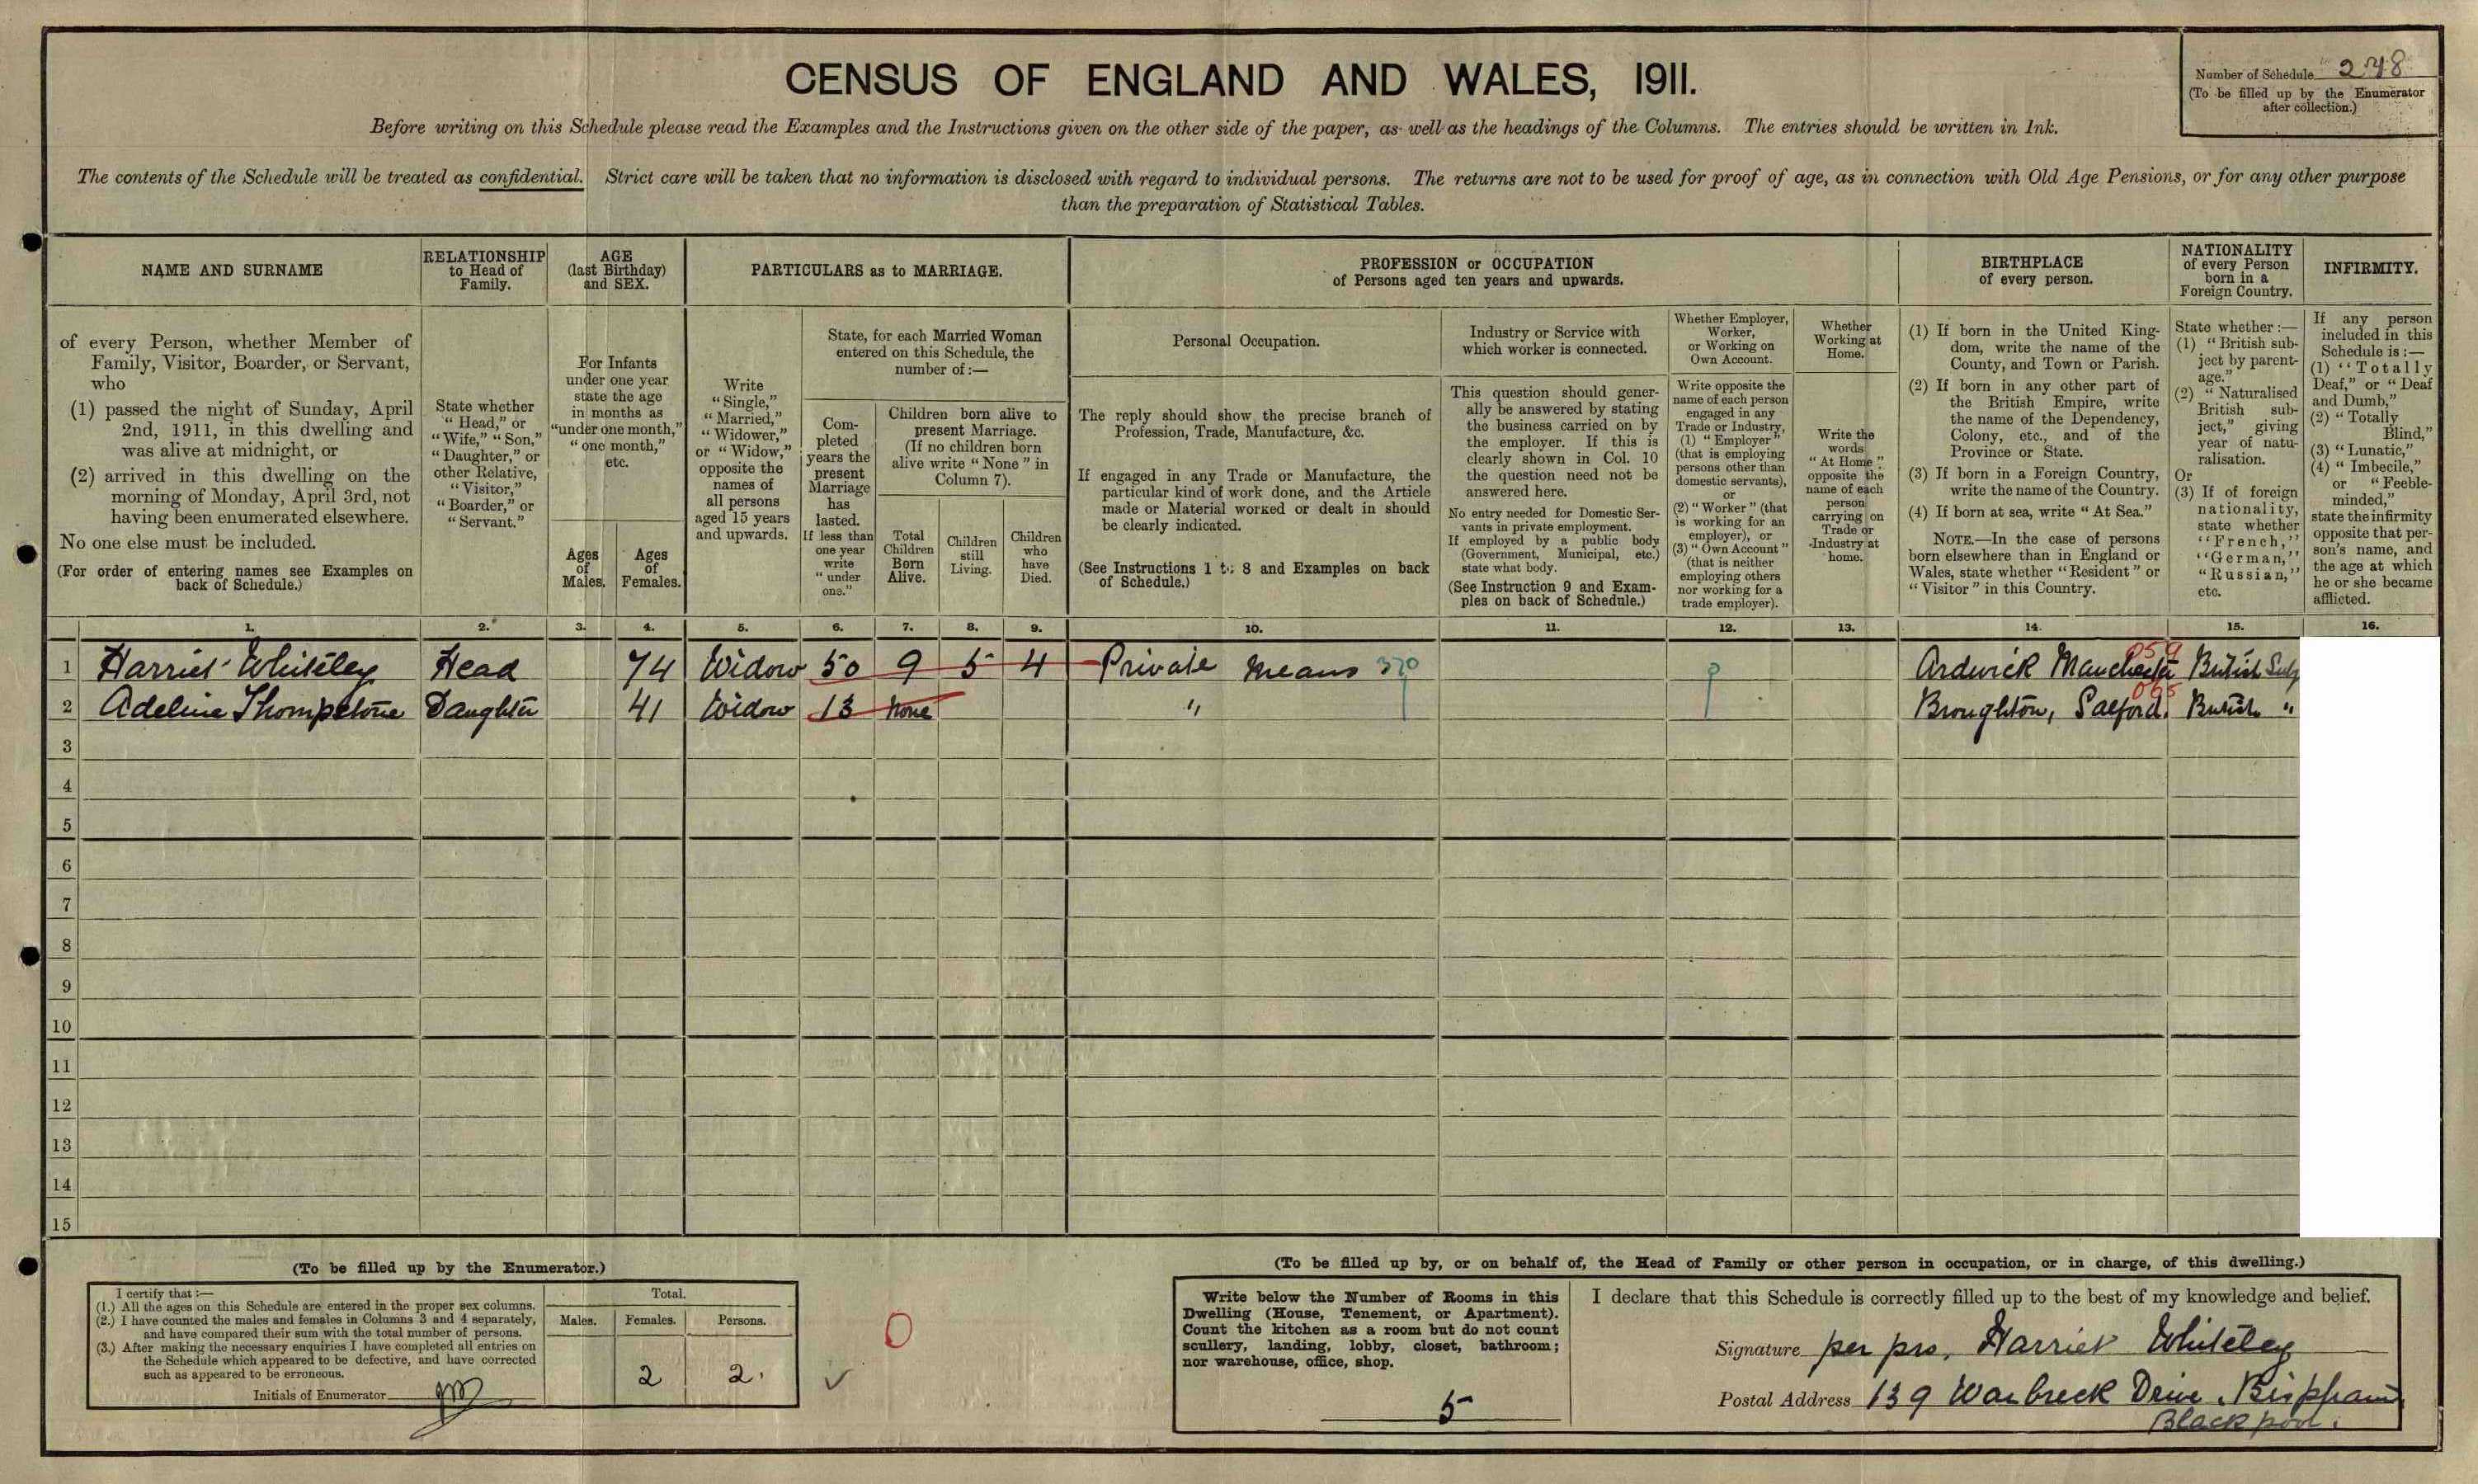 CENSUS OF ENGLAND AND WALES, 1911.
Number of Schedule 248
(To be filled up by the Enumerator
after collection.)
Before writing on this Schedule please read the Examples and the Instructions given on the other side of the paper, as well as the headings of the Columns. The entries should be written in Ink.
The contents of the Schedule will be treated as confidential. Strict care will be taken that no information is disclosed with regard to individual persons. The returns are not to be used for proof of age, as in connection with Old Age Pensions, or for any other purpose
than the preparation of Statistical Tables.
NAME AND SURNAME
of every Person, whether Member of
Family, Visitor, Boarder, or Servant,
who
(1) passed the night of Sunday, April
2nd, 1911, in this dwelling and
was alive at midnight, or
(2) arrived in this dwelling on the
morning of Monday, April 3rd, not
having been enumerated elsewhere.
No one else must be included.
(For order of entering names see Examples on
back of Schedule.)
RELATIONSHIP
to Head of
Family.
State whether
"Head," or
"Wife," "Son,"
"Daughter," or
other Relative,
"Visitor,"
"Boarder," or
"Servant."
AGE
(last Birthday)
and SEX.
For Infants
under one year
state the age
in months as
"under one month,"
"one month,"
etc.
Ages
of
Males.
Ages
of
Females.
PARTICULARS as to MARRIAGE.
Write
"Single,"
"Married,"
"Widower,"
or "Widow,"
opposite the
names of
all persons
aged 15 years
and upwards.
State, for each Married Woman
entered on this Schedule, the
number of:—
Com-
pleted
years the
present
Marriage
has
lasted.
If less than
one year
write
"under
one."
Children born alive to
present Marriage.
(If no children born
alive write "None" in
Column 7).
Total
Children
Born
Alive.
Children
still
Living.
Children
who
have
Died.
PROFESSION or OCCUPATION
of Persons aged ten years and upwards.
Personal Occupation.
The reply should show the precise branch of
Profession, Trade, Manufacture, &c.
If engaged in any Trade or Manufacture, the
particular kind of work done, and the Article
made or Material worked or dealt in should
be clearly indicated.
(See Instructions 1 to 8 and Examples on back
of Schedule.)
Industry or Service with
which worker is connected.
This question should gener-
ally be answered by stating
the business carried on by
the employer. If this is
clearly shown in Col. 10
the question need not be
answered here.
No entry needed for Domestic Ser-
vants in private employment.
If employed by a public body
(Government, Municipal, etc.)
state what body.
(See Instruction 9 and Exam-
ples on back of Schedule.)
Whether Employer,
Worker,
or Working on
Own Account.
Write opposite the
name of each person
engaged in any
Trade or Industry,
(1) "Employer"
(that is employing
persons other than
domestic servants),
or
(2) "Worker" (that
is working for an
employer), or
(3) "Own Account"
(that is neither
employing others
nor working for a
trade employer).
Whether
Working at
Home.
Write the
words
"At Home"
opposite the
name of each
person
carrying on
Trade or
Industry at
home.
BIRTHPLACE
of every person.
(1) If born in the United King-
dom, write the name of the
County, and Town or Parish.
(2) If born in any other part of
the British Empire, write
the name of the Dependency,
Colony, etc., and of the
Province or State.
(3) If born in a Foreign Country,
write the name of the Country.
(4) If born at sea, write "At Sea."
NOTE.—In the case of persons
born elsewhere than in England or
Wales, state whether "Resident" or
"Visitor" in this Country.
NATIONALITY
of every Person
born in a
Foreign Country.
State whether:—
(1) "British sub-
ject by parent-
age."
(2) "Naturalised
British sub-
ject," giving
year of natu-
ralisation.
Or
(3) If of foreign
nationality,
state whether
"French,"
"German,"
"Russian,"
etc.
INFIRMITY.
If any person
included in this
Schedule is:—
(1) "Totally
Deaf," or "Deaf
and Dumb,"
(2) "Totally
Blind,"
(3) "Lunatic,"
(4) "Imbecile,"
or "Feeble-
minded,"
state the infirmity
opposite that per-
son's name, and
the age at which
he or she became
afflicted.
1. 2. 3. 4. 5. 6. 7. 8. 9. 10. 11. 12. 13. 14. 15. 16.
059
1 Harriet Whiteley Head 74 Widow 50 9 5 4 Private means 370 Ardwick Manchester British Subj
065
2 Adeline Thompstone Daughter 41 Widow 13 None " Broughton, Salford. British "
3
4
5
6
7
8
9
10
11
12
13
14
15
(To be filled up by the Enumerator.)
I certify that:—
(1.) All the ages on this Schedule are entered in the proper sex columns.
(2.) I have counted the males and females in Columns 3 and 4 separately,
and have compared their sum with the total number of persons.
(3.) After making the necessary enquiries I have completed all entries on
the Schedule which appeared to be defective, and have corrected
such as appeared to be erroneous.
Initials of Enumerator
Total.
Males. Females. Persons.
2 2.
0
(To be filled up by, or on behalf of, the Head of Family or other person in occupation, or in charge, of this dwelling.)
Write below the Number of Rooms in this
Dwelling (House, Tenement, or Apartment).
Count the kitchen as a room but do not count
scullery, landing, lobby, closet, bathroom;
nor warehouse, office, shop.
5
I declare that this Schedule is correctly filled up to the best of my knowledge and belief.
Signature per pro, Harriet Whiteley
Postal Address 139 Warbreck Drive, Bispham
Blackpool.